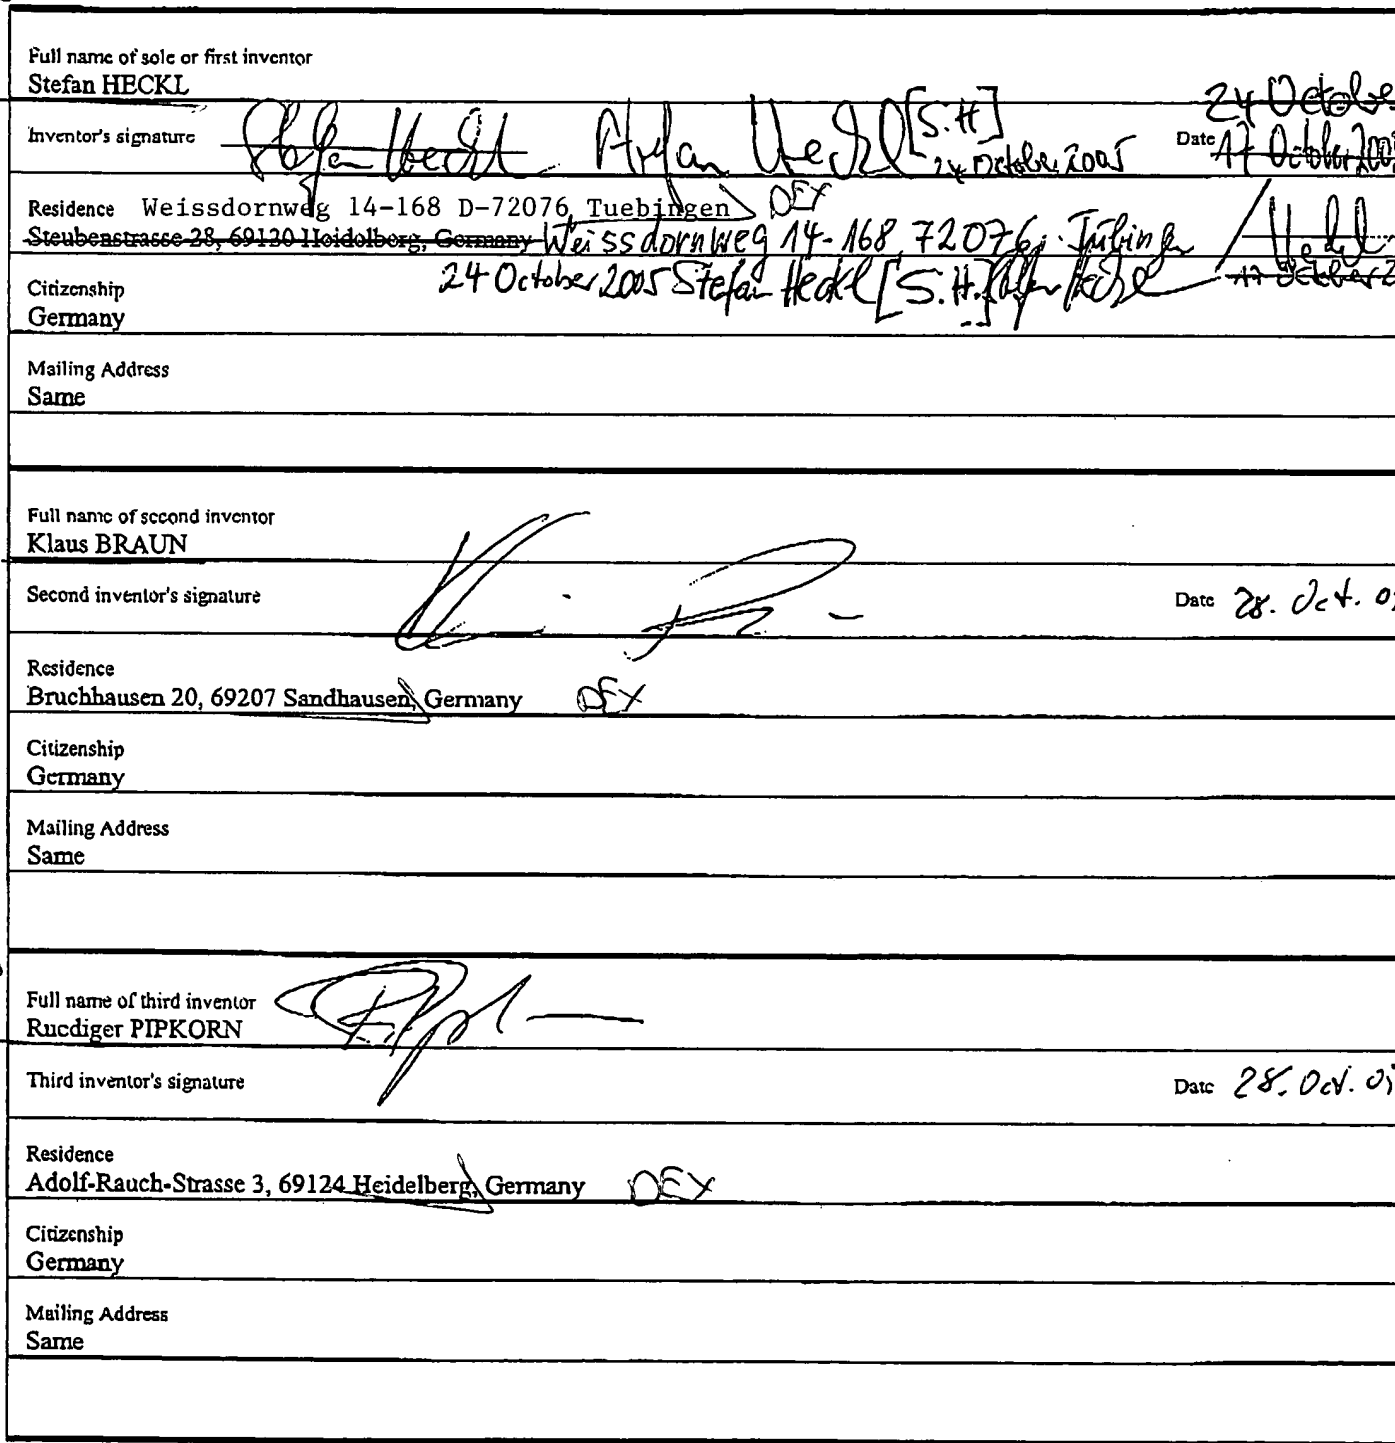 Full name of sole or first inventor
Stefan HECKL
24 October
Inventor's signature Stefan Heckl Stefan Heckl [S.H] 24 October 2005 Date 17 October 200
Residence Weissdornweg 14-168 D-72076 Tuebingen DEX
Steubenstrasse 28, 69120 Heidelberg, Germany Weissdornweg 14-168, 72076 Tübingen Heckl
Citizenship 24 October 2005 Stefan Heckl [S.H.] Stefan Heckl 17 October 2
Germany
Mailing Address
Same
Full name of second inventor
Klaus BRAUN
Second inventor's signature Date 28. Oct. 0
Residence
Bruchhausen 20, 69207 Sandhausen, Germany DEX
Citizenship
Germany
Mailing Address
Same
Full name of third inventor
Ruediger PIPKORN
Third inventor's signature Date 28. Oct. 0
Residence
Adolf-Rauch-Strasse 3, 69124 Heidelberg, Germany DEX
Citizenship
Germany
Mailing Address
Same